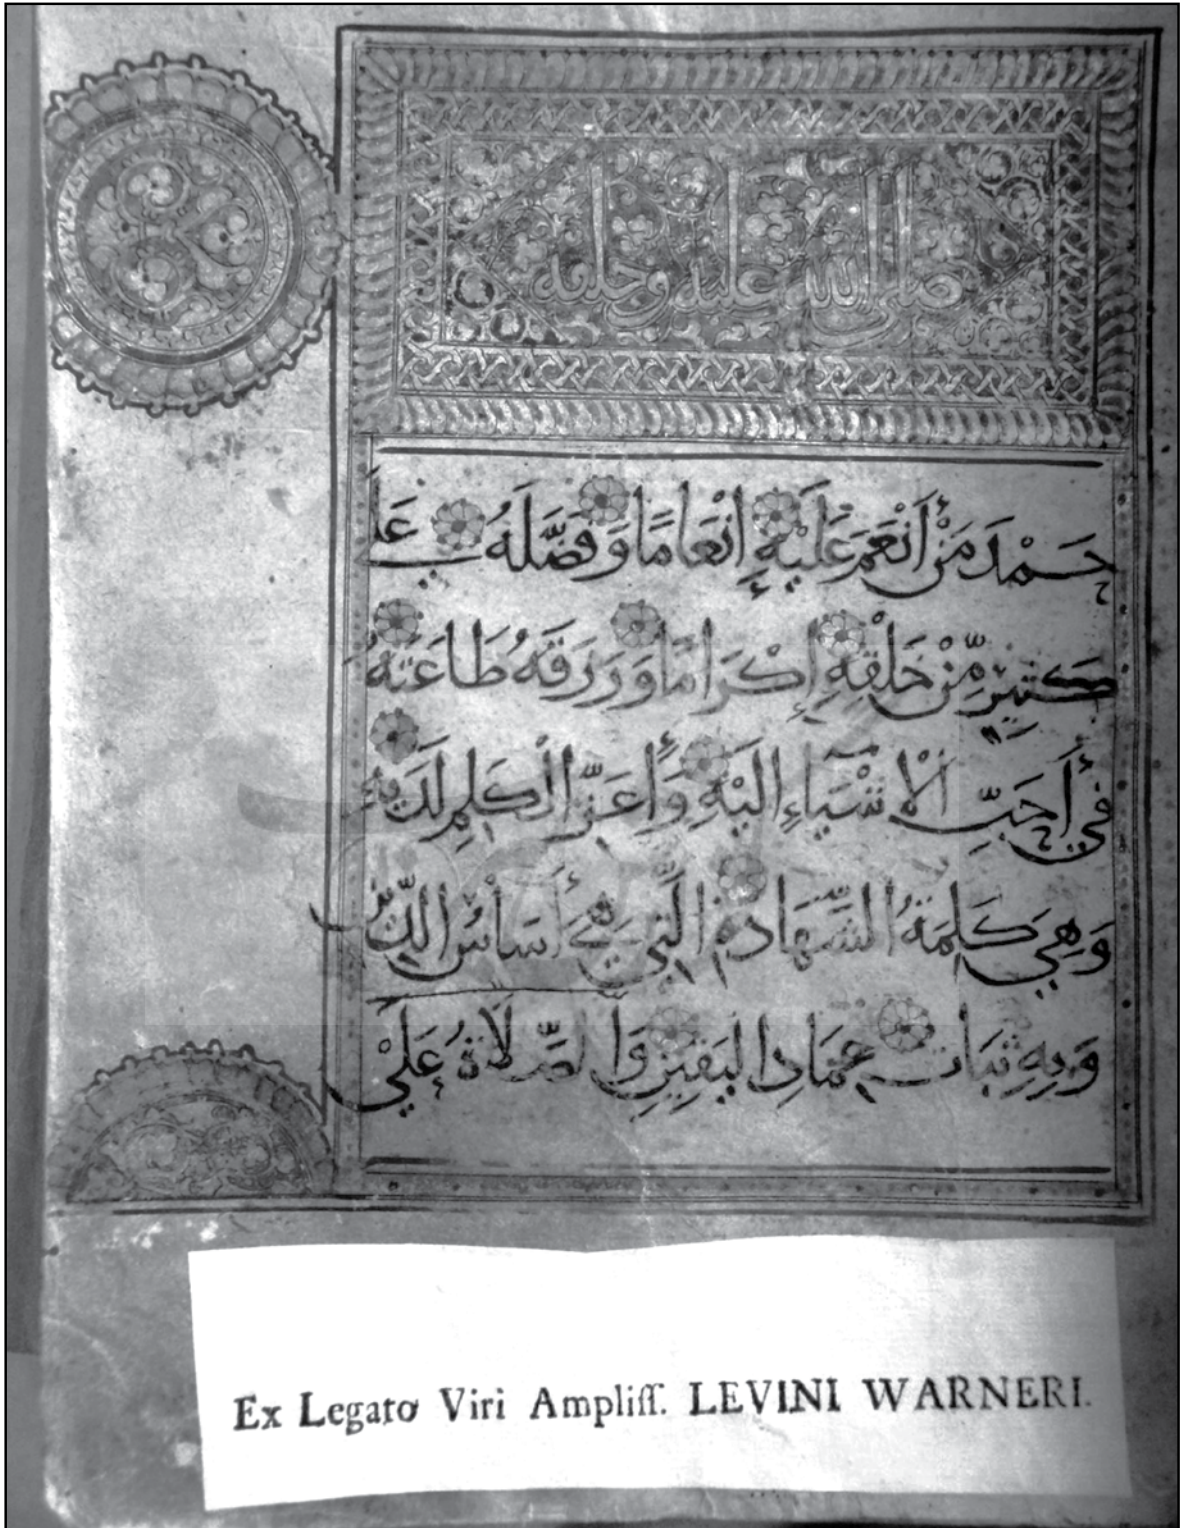 صلى الله عليه وخلفه
حَمْدَ مَنْ أَنْعَمَ عَلَيْهِ إِنْعَامًا وَفَضَّلَهُ عَلَى
كَثِيرٍ مِّنْ خَلْقِهِ إِكْرَامًا وَرَزَقَهُ طَاعَتَهُ
فِي أَحَبِّ الْأَشْيَاءِ إِلَيْهِ وَأَعَزِّ الْكَلِمِ لَدَيْهِ
وَهِيَ كَلِمَةُ الشَّهَادَةِ الَّتِي هِيَ أَسَاسُ الدِّينِ
وَبِهِ ثَبَاتُ عِمَادِ الْيَقِينِ وَالصَّلَاةُ عَلَى
Ex Legato Viri Ampliſſ. LEVINI WARNERI.